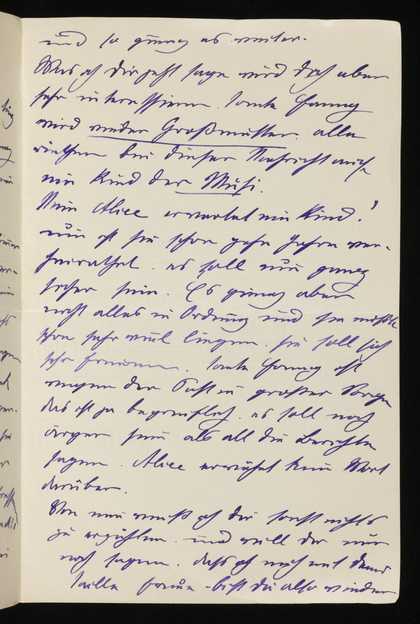 und so ging es weiter.
Was ich Dir jetzt sage wird dich aber
sehr interessieren. Tante Fanny
wird wieder Großmutter. alle
riethen bei dieser Nachricht auf
ein Kind der Musi.
Nein Alice erwartet ein Kind!
nun ist sie schon zehn Jahre ver-
heirathet. es soll nun ganz
sicher sein. Es ging aber
nicht alles in Ordnung und sie mußte
schon sehr viel liegen. sie soll sich
sehr freuen. Tante Fanny ist
wegen der Pest in großer Sorge
das ist ja begreiflich. es soll noch
ärger sein als all die Berichte
sagen. Alice erwähnt kein Wort
darüber.
Von mir weiß ich dir sonst nichts
zu erzählen. und will dir nur
noch sagen. daß ich mich mit deine
freue. bist du also wieder